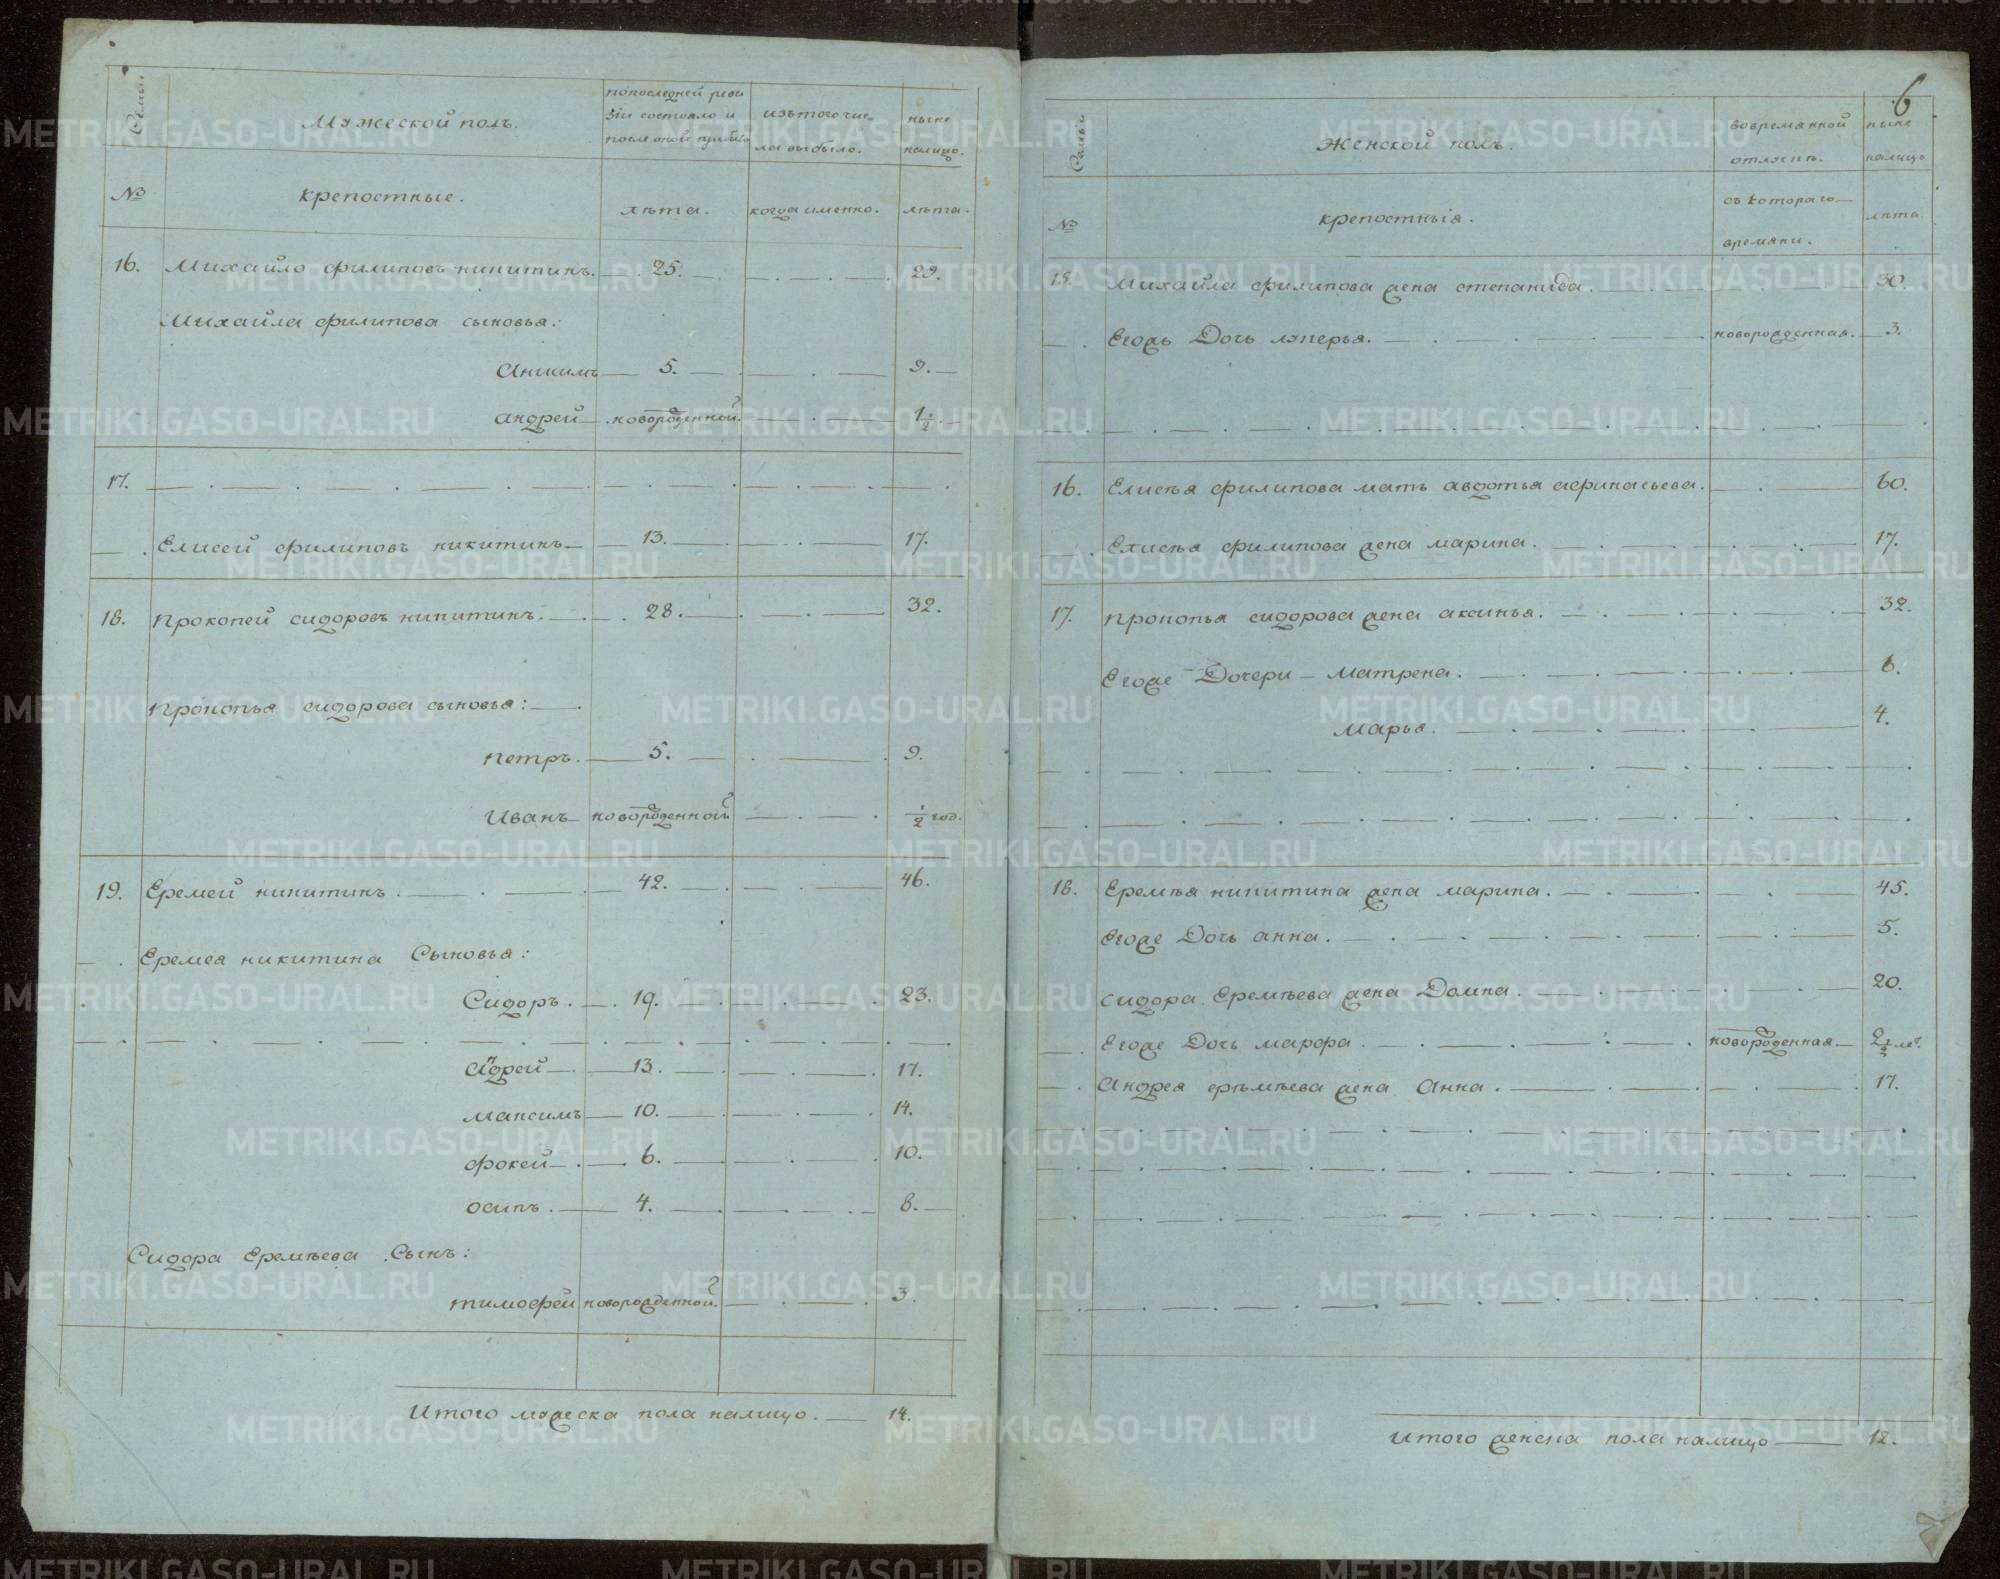 Семьи
Мужеской полъ.
попоследней реви
зіи состояло и
после оной прибыло
изътогочис-
ла выбыло.
ныне
налицо.
№
крепостные.
лѣта.
когда именно.
лѣта.
16. Михайло филиповъ никитинъ. 25. 29.
Михайла филипова сыновья:
Анисимъ 5. 9.
андрей новорожденной 1 1/2
17.
Елисей филиповъ никитинъ 13. 17.
18. Прокопей сидоровъ никитинъ. 28. 32.
Прокопья сидорова сыновья:
петръ. 5. 9.
Иванъ новорожденной 1/2 год.
19. Еремей никитинъ. 42. 46.
Еремея никитина Сыновья:
Сидоръ. 19. 23.
Андрей 13. 17.
максимъ 10. 14.
фокей 6. 10.
осипъ. 4. 8.
Сидора Еремѣева Сынъ:
тимофей новорожденной. 3.
Итого мужеска пола налицо. 14.
6
Семьи
Женской полъ.
вовременной
отлучке.
ныне
налицо
№
крепостныя.
съ котораго
времяни.
лѣта
15. Михайла филипова жена степанида. 30.
Егожъ Дочь лукерья. новорожденная. 3.
16. Елисѣя филипова мать авдотья афинасьева. 60.
Елисѣя филипова жена марина. 17.
17. прокопья сидорова жена аксинья. 32.
Егоже Дочери матрена. 6.
марья. 4.
18. Еремѣя никитина жена марина. 45.
Егоже Дочь анна. 5.
сидора Еремѣева жена Домна. 20.
Егоже Дочь марфа. новорожденная 2 1/2 ле.
Андрея ерѣмѣева жена Анна. 17.
Итого женска пола налицо 12.
METRIKI.GASO-URAL.RU